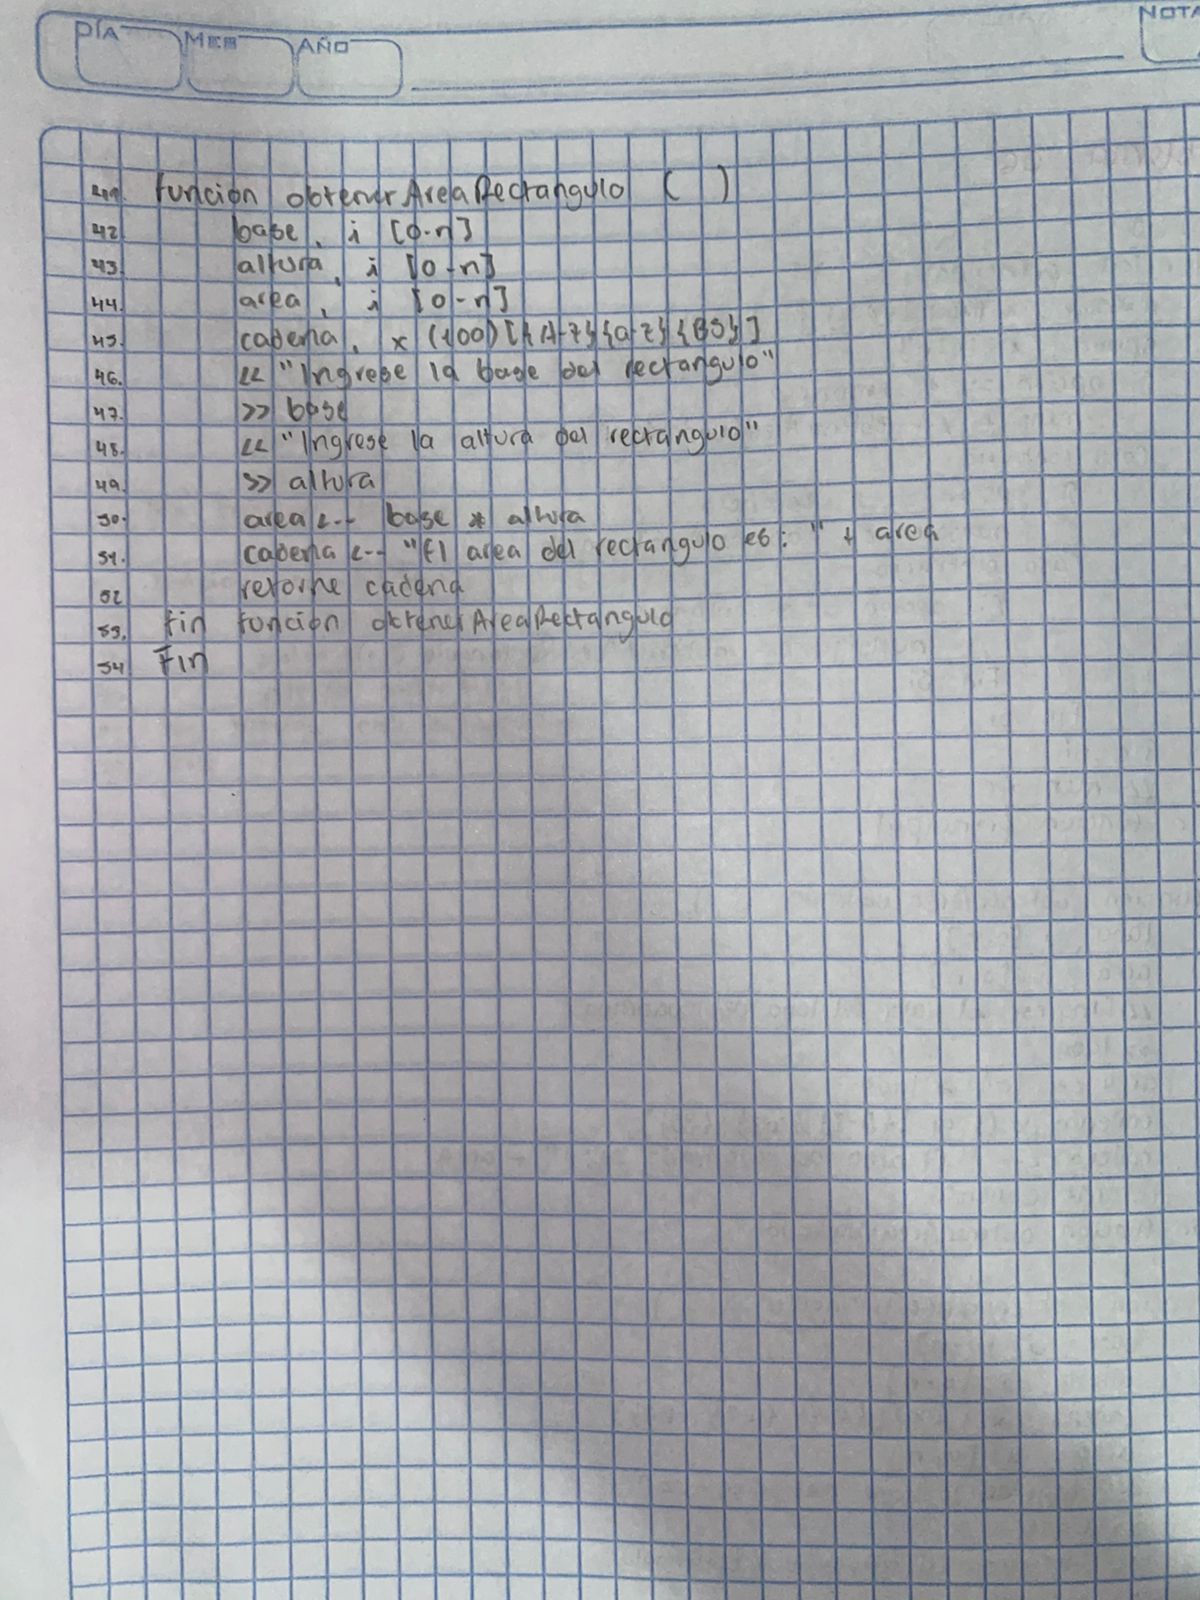 DÍA MES AÑO
NOTA
41. función obtenerAreaRectangulo ( )
42 base, i [0-n]
43. altura, i [0-n]
44. area, i [0-n]
45. cadena, x (100) [{A-z}{a-z}{BS}]
46. << "Ingrese la base del rectangulo"
47. >> base
48. << "Ingrese la altura del rectangulo"
49. >> altura
50. area <-- base * altura
51. cadena <-- "El area del rectangulo es: " + area
52 retorne cadena
53. fin función obtenerAreaRectangulo
54 Fin